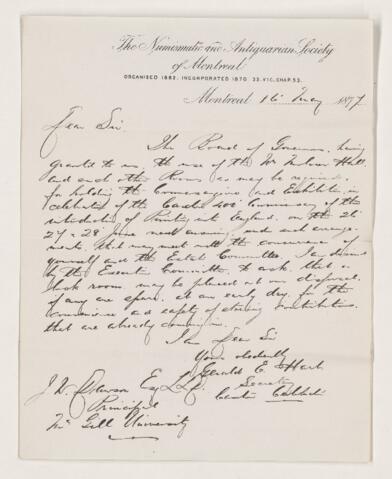 The Numismatic and Antiquarian Society
of Montreal
ORGANISED 1862. INCORPORATED 1870. 33. VIC. CHAP. 53.
Montreal 16 May 1877
Dear Sir
The Board of Governors, having
granted to us, the use of the Wm Molson Hall
and such other Rooms as may be required,
for holding the Conversazione and Exhibition in
celebration of the Caxton 400th Anniversary of the
introduction of Printing into England, on the 26
27 & 28 June next ensuing, under such arrange-
ments, that may meet with the concurrence of
yourself and the Estate Committee, I am desired
by the Executive Committee, to ask, that a
lock room, may be placed at our disposal,
if any are spare, at an early day, for the
convenience and safety of storing contributions
that are already coming in.
I am Dear Sir
Yours obediently
Gerald E Hart
Secretary
Caxton Exhibition
J W Dawson Esq LLD.
Principal
McGill University